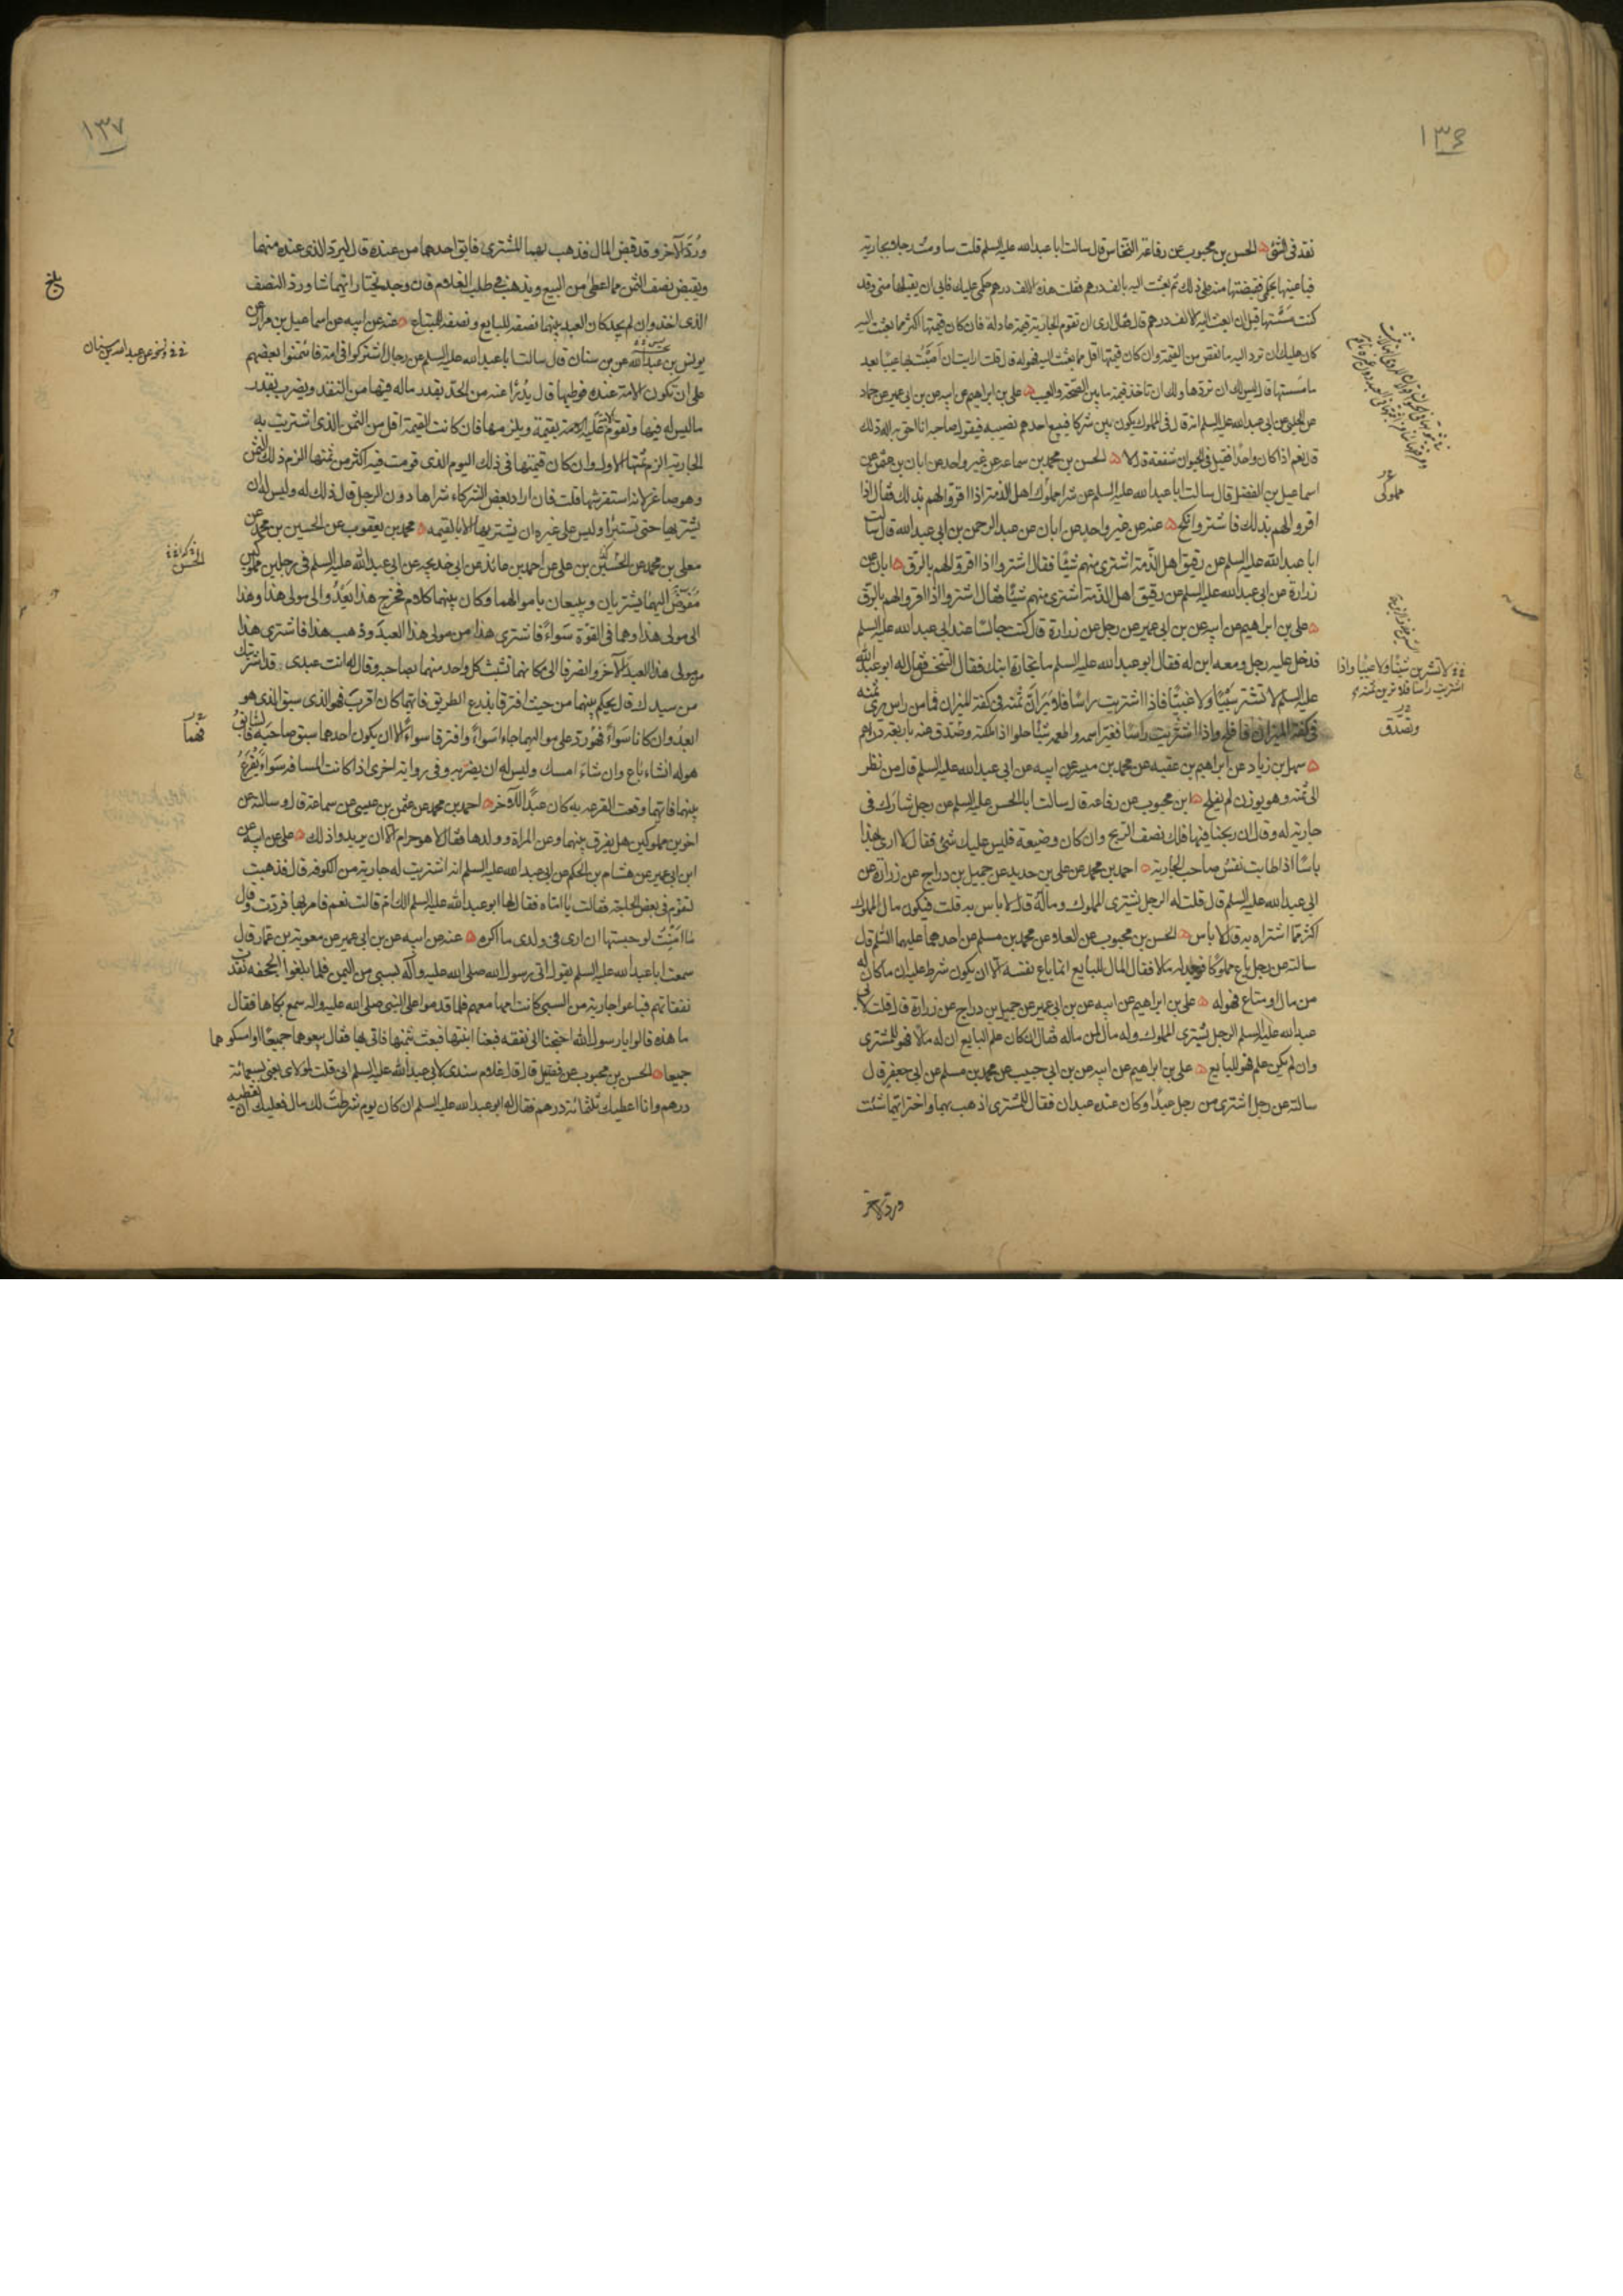 ١٣٦
نقد فى الشئ الحسن بن محبوب عن رفاعة النخاس قال سالت ابا عبد الله عليه السلم قلت ساومت رجلا بجارية
فباعنيها بحكمى فقبضتها منه على ذلك ثم بعثت اليه بالف درهم فقلت هذه الالف درهم حكمى عليك فابى ان يقبلها منى وقد
كنت مسستها قبل ان ابعث اليه الالف درهم قال فقال ارى ان تقوم الجارية قيمة عادلة فان كان قيمتها اكثر مما بعثت اليه
كان عليك ان ترد اليه ما نقص من القيمة وان كان قيمتها اقل مما بعثت اليه فهو له قال قلت ارايت ان اصبت بها عيبا بعد
ما مسستها قال ليس لك ان تردها ولك ان تاخذ قيمة ما بين الصحة والعيب على بن ابراهيم عن ابيه عن بن ابى عمير عن حماد
عن الحلبى عن ابى عبد الله عليه السلم انه قال فى المملوك يكون بين شركا فيبيع احدهم نصيبه فيقول صاحبه انا احق به اله ذلك
قال نعم اذا كان واحدا فقيل فى الحيوان شفعة قال لا الحسن بن محمد بن سماعة عن غير واحد عن ابان بن عثمن عن
اسماعيل بن الفضل قال سالت ابا عبد الله عليه السلم عن شرا مملوك اهل الذمة اذا اقروا لهم بذلك فقال اذا
اقروا لهم بذلك فاشتر وانكح عنه عن غير واحد عن ابان عن عبد الرحمن بن ابى عبد الله قال سالت
ابا عبد الله عليه السلم عن رقيق اهل الذمة اشترى منهم شيئا فقال اشتر اذا اقروا لهم بالرق ابان عن
زرارة عن ابى عبد الله عليه السلم عن رقيق اهل الذمة اشترى منهم شيئا فقال اشتر اذا اقروا لهم بالرق
على بن ابراهيم عن ابيه عن بن ابى عمير عن رجل عن زرارة قال كنت جالسا عند ابى عبد الله عليه السلم
فدخل عليه رجل ومعه ابن له فقال ابو عبد الله عليه السلم ما تجارة ابنك فقال التنخس فقال له ابو عبد الله
عليه السلم لا تشتر سبيا ولا غبيا فاذا اشتريت راسا فلا يران ثمنه فى كفة الميزان فما من راس يرى ثمنه
فى كفة الميزان فافلح واذا اشتريت راسا فغير اسمه واطعمه شيئا حلوا اذا ملكته وصدق عنه باربعة دراهم
سهل بن زياد عن ابراهيم بن عقبه عن محمد بن ميسر عن ابيه عن ابى عبد الله عليه السلم قال من نظر
الى ثمنه وهو يوزن لم يفلح ابن محبوب عن رفاعه قال سالت ابا الحسن عليه السلم عن رجل شارك فى
جارية له وقال ان ربحنا فيها فلك نصف الربح وان كان وضيعة فليس عليك شئ فقال لا ارى بهذا
باسا اذا طابت نفس صاحب الجارية احمد بن محمد عن على بن حديد عن جميل بن دراج عن زرارة عن
ابى عبد الله عليه السلم قال قلت له الرجل يشترى المملوك وماله قال لا باس به قلت فيكون مال المملوك
اكثر مما اشتراه به قال لا باس الحسن بن محبوب عن العلاء عن محمد بن مسلم عن احدهما عليهما السلم قال
سالته عن رجل باع مملوكا فوجد له مالا فقال المال للبايع انما باع نفسه الا ان يكون شرط عليه ان ما كان له
من مال او متاع فهو له على بن ابراهيم عن ابيه عن بن ابى عمير عن جميل بن دراج عن زرارة قال قلت لابى
عبد الله عليه السلم الرجل يشترى المملوك وله مال لمن ماله فقال ان كان علم البايع ان له مالا فهو للمشترى
وان لم يكن علم فهو للبايع على بن ابراهيم عن ابيه عن بن ابى حبيب عن محمد بن مسلم عن ابى جعفر قال
سالته عن رجل اشترى من رجل عبدا وكان عنده عبدان فقال للمشترى اذهب بهما واختر ايهما شئت
ورد الاخر
مملوكى
لا تشترين شيئا ولا عيبا واذا
اشتريت راسا فلا ترين ثمنه فى
وتصدق
١٣٧
ورد الاخر وقد قبض المال فذهب بهما المشترى فابق احدهما من عنده قال ليرد الذى عنده منهما
ويقبض نصف الثمن مما اعطى من البيع ويذهب فى طلب الغلام فان وجد يختار ايهما شا ورد النصف
الذى اخذ وان لم يجد كان العبد بينهما نصفه للبايع ونصفه للمبتاع عنه عن ابيه عن اسماعيل بن مرار عن
يونس بن عبد الله عن بن سنان قال سالت ابا عبد الله عليه السلم عن رجال اشتركوا فى امة فائتمنوا بعضهم
على ان تكون الامة عنده فوطيها قال يدرا عنه من الحد بقدر ماله فيها من النقد ويضرب بقدر
ما ليس له فيها وتقوم الامة عليه بقيمة ويلزمها فان كانت القيمة اقل من الثمن الذى اشتريت به
الجارية الزم ثمنها الاول وان كان قيمتها فى ذلك اليوم الذى قومت فيه اكثر من ثمنها الزم ذلك الثمن
وهو صاغر لانه استفرشها قلت فان اراد بعض الشركاء شراها دون الرجل قال ذلك له وليس له ان
يشتريها حتى تستبرا وليس على غيره ان يشتريها الا بالقيمه محمد بن يعقوب عن الحسين بن محمد عن
معلى بن محمد عن الحسين بن على عن احمد بن عائذ عن ابى خديجه عن ابى عبد الله عليه السلم فى رجلين مملوكين
مفوض اليهما يشتريان ويبيعان باموالهما وكان بينهما كلام فخرج هذا يعدوا الى مولى هذا وهذا
الى مولى هذا وهما فى القوة سواء فاشترى هذا من مولى هذا العبد وذهب هذا فاشترى هذا
من مولى هذا العبد الاخر وانصرفا الى مكانهما تشبث كل واحد منهما بصاحبه وقال له انت عبدى قد اشتريتك
من سيدك قال يحكم بينهما من حيث افترقا يذرع الطريق فايهما كان اقرب فهو الذى سبق الذى هو
ابعد وان كانا سواء فهو رد على مواليهما جاءا سواء وافترقا سواء الا ان يكون احدهما سبق صاحبه فالسابق
هو له ان شاء باع وان شاء امسك وليس له ان يضربه وفى رواية اخرى اذا كانت المسافه سواء يقرع
بينهما فايهما وقعت القرعه به كان عبدا للاخر احمد بن محمد عن عثمن بن عيسى عن سماعة قال وسالته عن
اخوين مملوكين هل يفرق بينهما وعن المراة وولدها فقال لا هو حرام الا ان يريدوا ذلك على عن ابيه عن
ابن ابى عمير عن هشام بن الحكم عن ابى عبد الله عليه السلم انه اشتريت له جارية من الكوفه قال فذهبت
لتقوم فى بعض الحاجة فقالت يا امتاه فقال لها ابو عبد الله عليه السلم الك ام قالت نعم فامر بها فردت وقال
ما امنت لو حبستها ان ارى فى ولدى ما اكره عنه عن ابيه عن بن ابى عمير عن معوية بن عمار قال
سمعت ابا عبد الله عليه السلم يقول اتى رسول الله صلى الله عليه وآله بسبى من اليمن فلما بلغوا الجحفه نفدت
نفقاتهم فباعوا جارية من السبى كانت امها معهم فلما قدموا على النبى صلى الله عليه واله سمع بكاها فقال
ما هذه قالوا يا رسول الله احتجنا الى نفقه فبعنا ابنتها فبعث بثمنها فاتى بها فقال بيعوهما جميعا او امسكوهما
جميعا الحسن بن محبوب عن فضيل قال قال غلام سندى لابى عبد الله عليه السلم انى قلت لمولاى بعنى بسبعمائة
درهم وانا اعطيك ثلثمائة درهم فقال له ابو عبد الله عليه السلم ان كان يوم شرطت لك مال فعليك ان تعطيه
بلغ
عن عبد الله بن سنان
الحسن
فهما